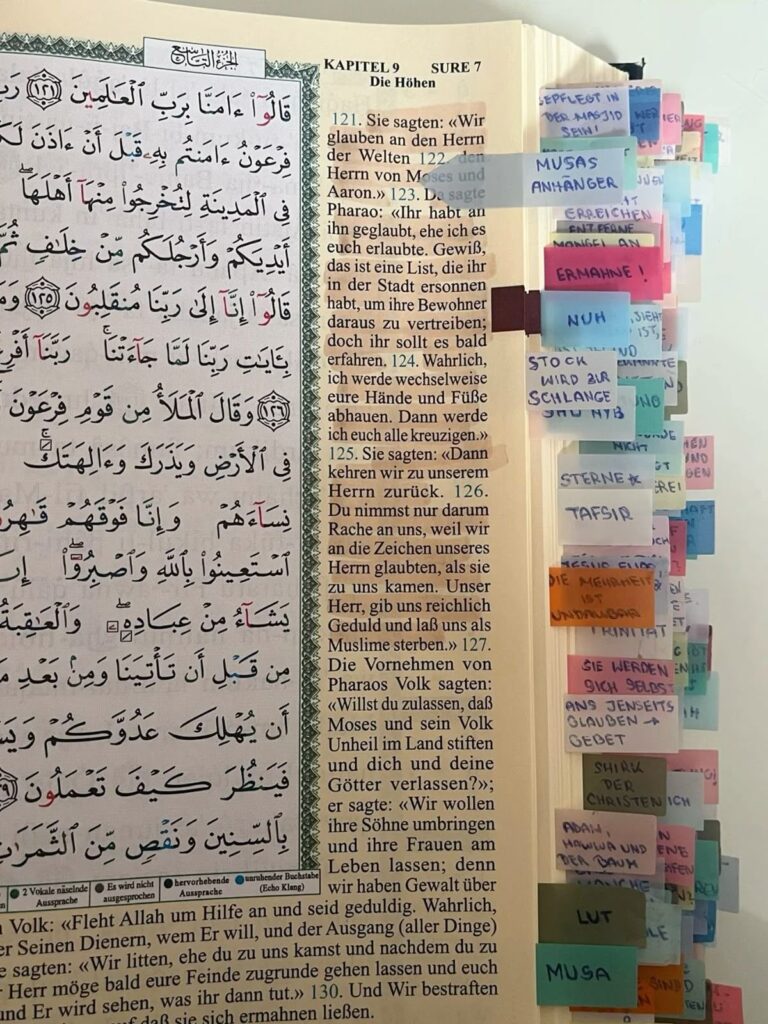 الجزء التاسع
KAPITEL 9 SURE 7
Die Höhen
قَالُوٓا۟ ءَامَنَّا بِرَبِّ ٱلْعَـٰلَمِينَ ١٢١
فِرْعَوْنُ ءَامَنتُم بِهِۦ قَبْلَ أَنْ ءَاذَنَ
فِى ٱلْمَدِينَةِ لِتُخْرِجُوا۟ مِنْهَآ أَهْلَهَا
أَيْدِيَكُمْ وَأَرْجُلَكُم مِّنْ خِلَـٰفٍ
قَالُوٓا۟ إِنَّآ إِلَىٰ رَبِّنَا مُنقَلِبُونَ ١٢٥
بِـَٔايَـٰتِ رَبِّنَا لَمَّا جَآءَتْنَا رَبَّنَآ
١٢٦ وَقَالَ ٱلْمَلَأُ مِن قَوْمِ فِرْعَوْنَ
فِى ٱلْأَرْضِ وَيَذَرَكَ وَءَالِهَتَكَ
نِسَآءَهُمْ وَإِنَّا فَوْقَهُمْ
ٱسْتَعِينُوا۟ بِٱللَّهِ وَٱصْبِرُوٓا۟
يَشَآءُ مِنْ عِبَادِهِۦ وَٱلْعَـٰقِبَةُ
مِن قَبْلِ أَن تَأْتِيَنَا وَمِنۢ بَعْدِ
أَن يُهْلِكَ عَدُوَّكُمْ
فَيَنظُرَ كَيْفَ تَعْمَلُونَ
بِٱلسِّنِينَ وَنَقْصٍ مِّنَ ٱلثَّمَرَٰتِ
2 Vokale näselnde Aussprache
Es wird nicht ausgesprochen
hervorhebende Aussprache
unruhender Buchstabe (Echo Klang)
121. Sie sagten: «Wir
glauben an den Herrn
der Welten 122. den
Herrn von Moses und
Aaron.» 123. Da sagte
Pharao: «Ihr habt an
ihn geglaubt, ehe ich es
euch erlaubte. Gewiß,
das ist eine List, die ihr
in der Stadt ersonnen
habt, um ihre Bewohner
daraus zu vertreiben;
doch ihr sollt es bald
erfahren. 124. Wahrlich,
ich werde wechselweise
eure Hände und Füße
abhauen. Dann werde
ich euch alle kreuzigen.»
125. Sie sagten: «Dann
kehren wir zu unserem
Herrn zurück. 126.
Du nimmst nur darum
Rache an uns, weil wir
an die Zeichen unseres
Herrn glaubten, als sie
zu uns kamen. Unser
Herr, gib uns reichlich
Geduld und laß uns als
Muslime sterben.» 127.
Die Vornehmen von
Pharaos Volk sagten:
«Willst du zulassen, daß
Moses und sein Volk
Unheil im Land stiften
und dich und deine
Götter verlassen?»;
er sagte: «Wir wollen
ihre Söhne umbringen
und ihre Frauen am
Leben lassen; denn
wir haben Gewalt über
Volk: «Fleht Allah um Hilfe an und seid geduldig. Wahrlich,
Seinen Dienern, wem Er will, und der Ausgang (aller Dinge)
sagten: «Wir litten, ehe du zu uns kamst und nachdem du zu
Herr möge bald eure Feinde zugrunde gehen lassen und euch
und Er wird sehen, was ihr dann tut.» 130. Und Wir bestraften
auf daß sie sich ermahnen ließen.
GEPFLEGT IN
DER MASJID
SEIN!
MUSAS
ANHÄNGER
ERREICHEN
ENTFERNE
MANGEL AN
ERMAHNE!
NUH
STOCK
WIRD ZUR
SCHLANGE
NICHT
STERNE
TAFSIR
DIE MEHRHEIT
IST
UNDANKBAR
TRINITÄT
SIE WERDEN
SICH SELBST
ANS JENSEITS
GLAUBEN →
GEBET
SHIRK
DER
CHRISTEN
ADAM,
HAWWA UND
DER BAUM
LUT
MUSA